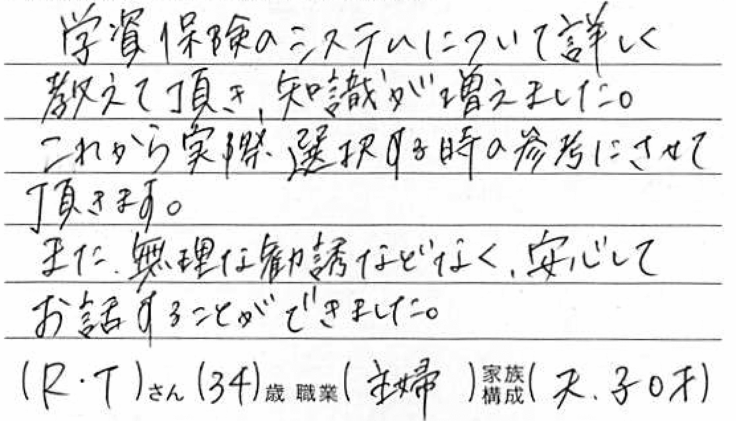 学資保険のシステムについて詳しく
教えて頂き、知識が増えました。
これから実際、選択する時の参考にさせて
頂きます。
また、無理な勧誘などなく、安心して
お話することができました。
(R・T)さん(34)歳 職業(主婦)家族構成(夫、子0才)